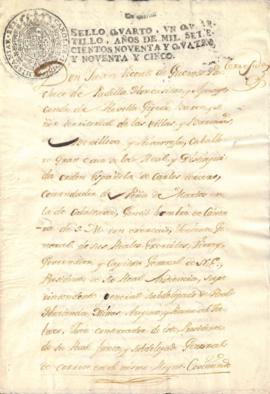 SELLO QVARTO, VN QVAR-
TILLO, AÑOS DE MIL SETE-
CIENTOS NOVENTA Y QVATRO
Y NOVENTA Y CINCO.
Don Juan Vicente de Güemes Pa-
checo de Padilla Horcasitas y Aguayo
Conde de Revilla Gigedo Baron y
Señor territorial de las Villas y Baronias
de Benillova y Rivarroja, Caballe-
ro Gran Cruz de la Real y Distinguida
orden Española de Carlos
Comendador de Peña de Martos
en la de Calatrava, Gentil hombre de Camara
de S. M. con exercicio, Teniente
General de sus Reales Exercitos, Virrey,
Governador y Capitan General de N. E.
Presidente de su Real Audiencia, Supe
rintendente General Subdelegado de Real
Hacienda, Minas, Azogues y Ramo del Ta-
baco, Juez Conservador de este, Presidente
de su Real Junta, y Subdelegado General
de Correos en el mismo Reyno.